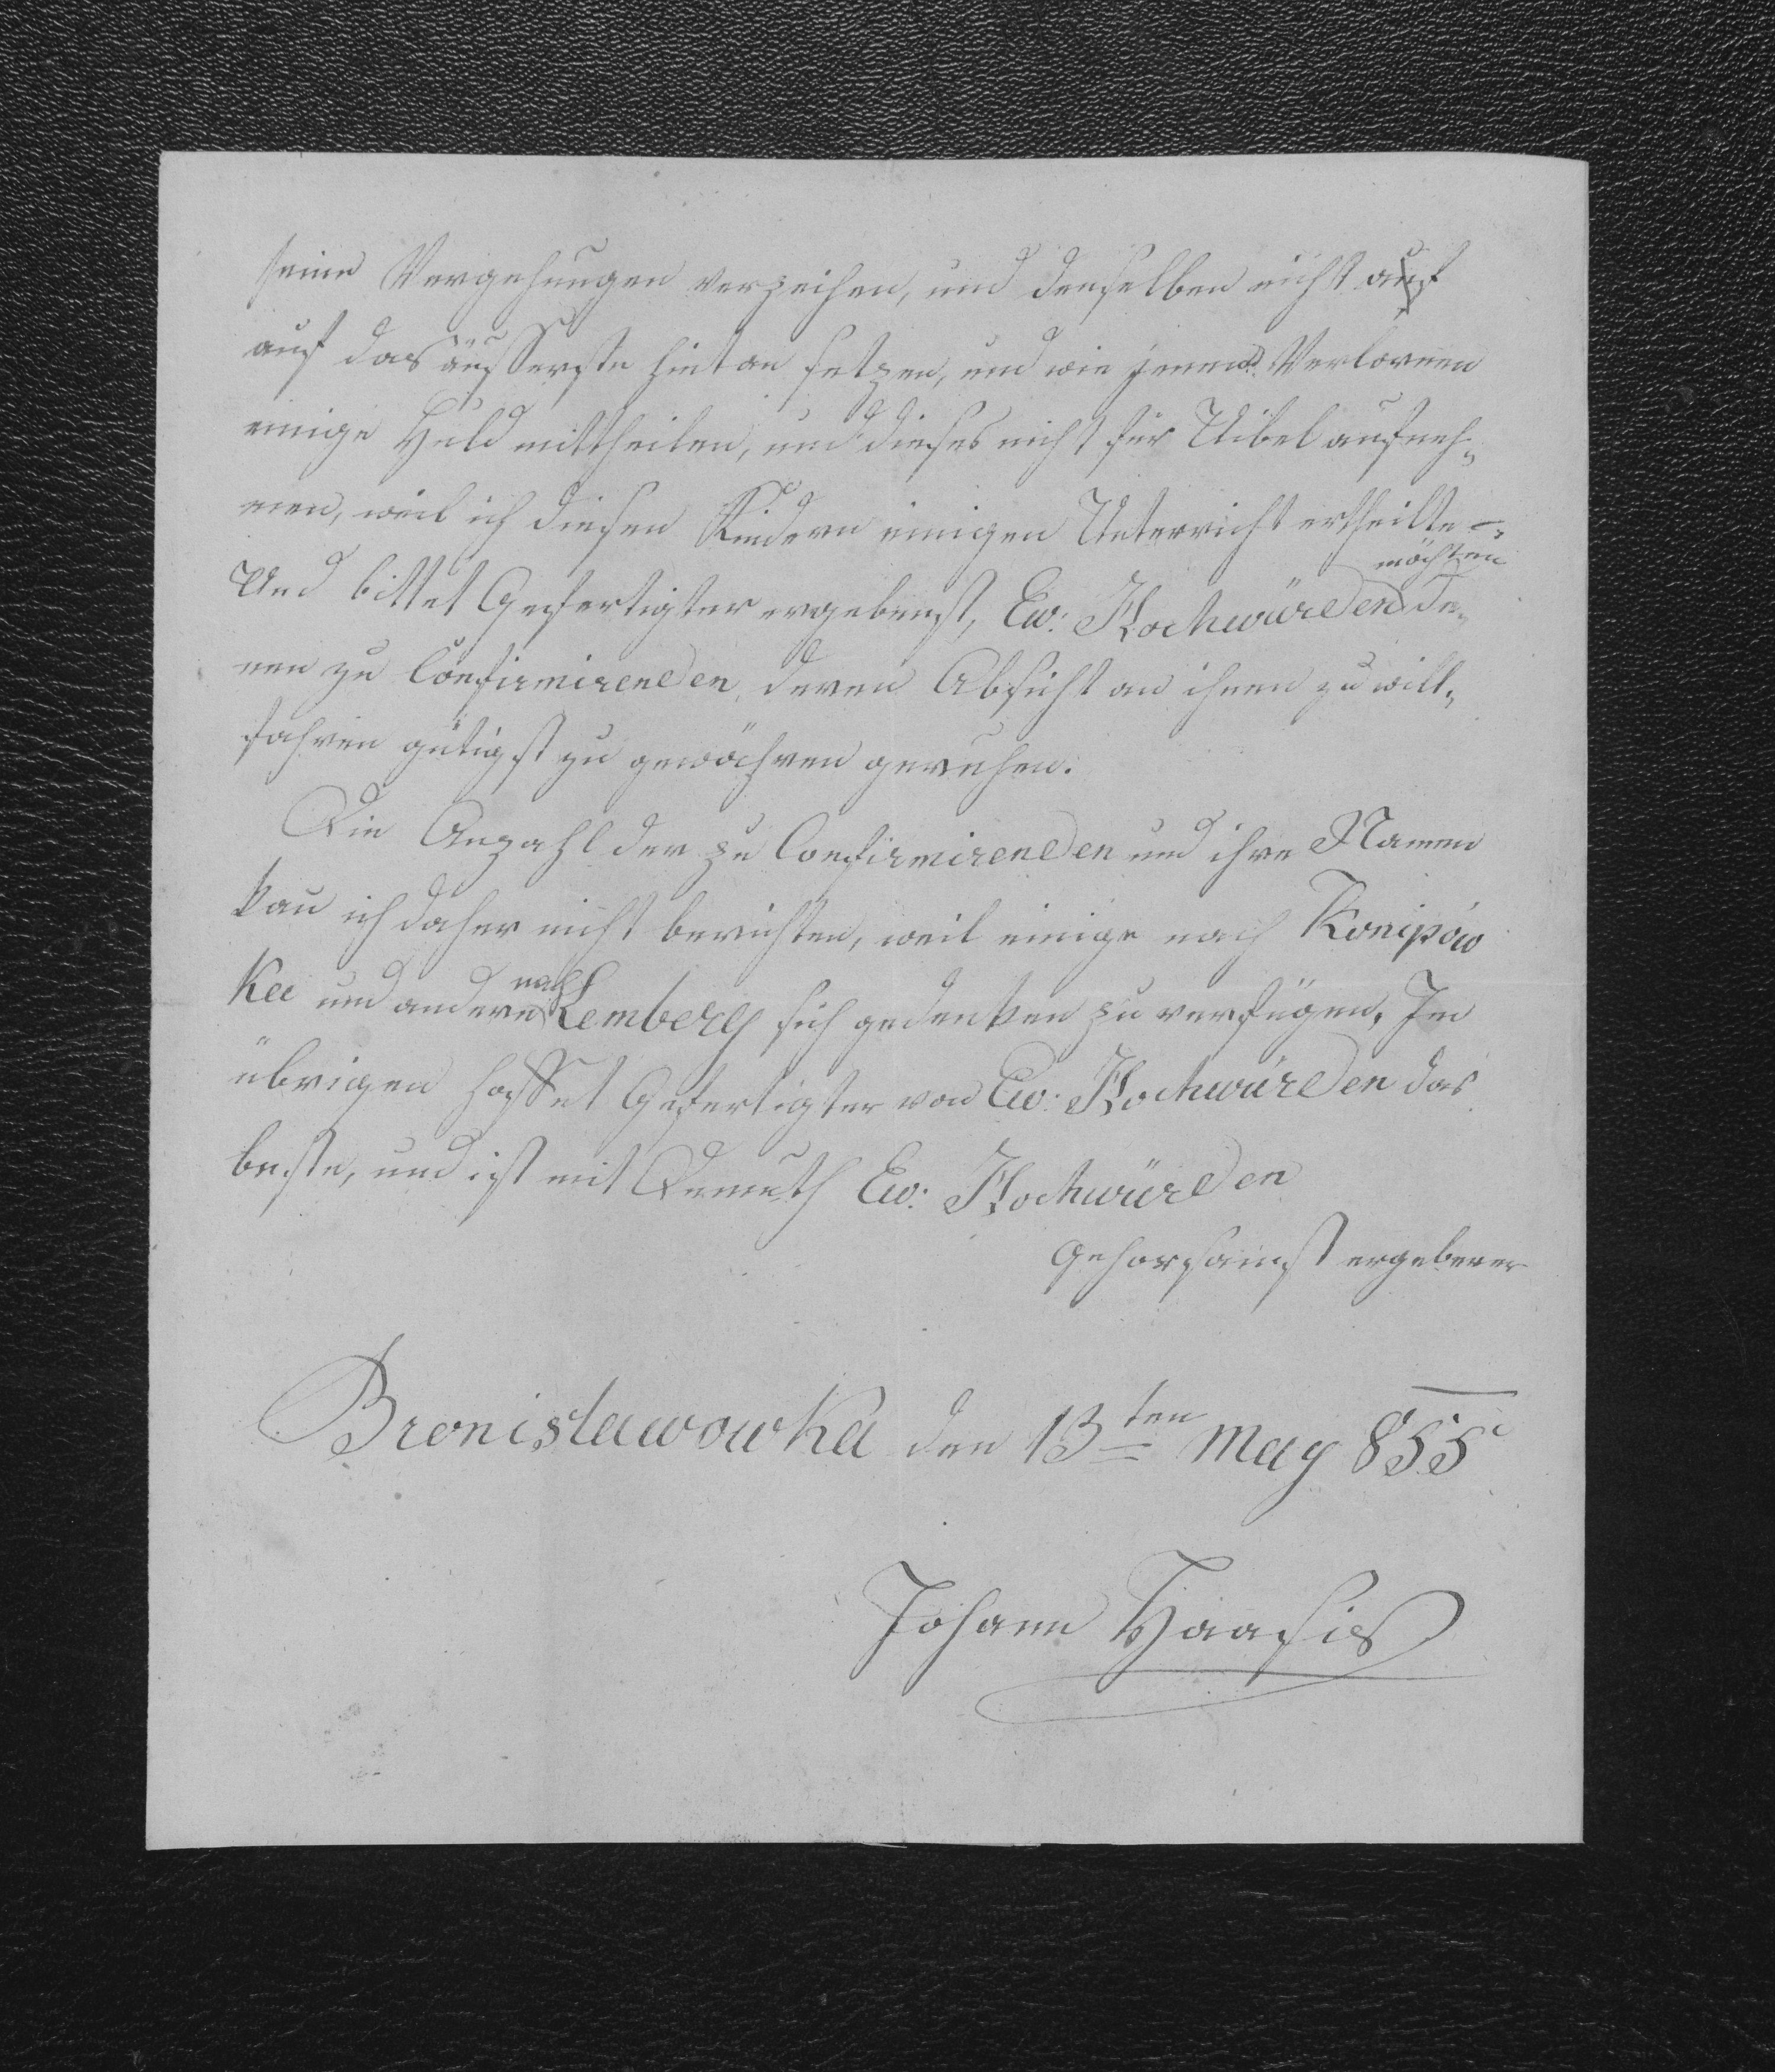 seine Vergehungen verzeihen, und denselben nicht auf
auf das äußerste hintan setzen, und wie jenem Verlornen
einige Huld mittheilen, und dieses nicht für Uibel aufneh-
men, weil ich diesen Kindern einigen Unterricht ertheilte -
möchten
Und bittet Gefertigter ergebenst, Ew: Hochwürden de-
nen zu Confirmirenden, deren Absicht an ihnen zu will-
fahren gütigst zu gewähren geruhen.
Die Anzahl der zu Confirmirenden und ihre Namen
kan ich daher nicht berichten, weil einige nach Konipów
nach
ka und andere Lemberg sich gedenken zu verfügen. Im
übrigen hoffet Gefertigter von Ew: Hochwürden das
beste, und ist mit Demuth Ew: Hochwürden
Gehorsamst ergebener
Bronisławowka den 13ten May 855
Johann Haasis